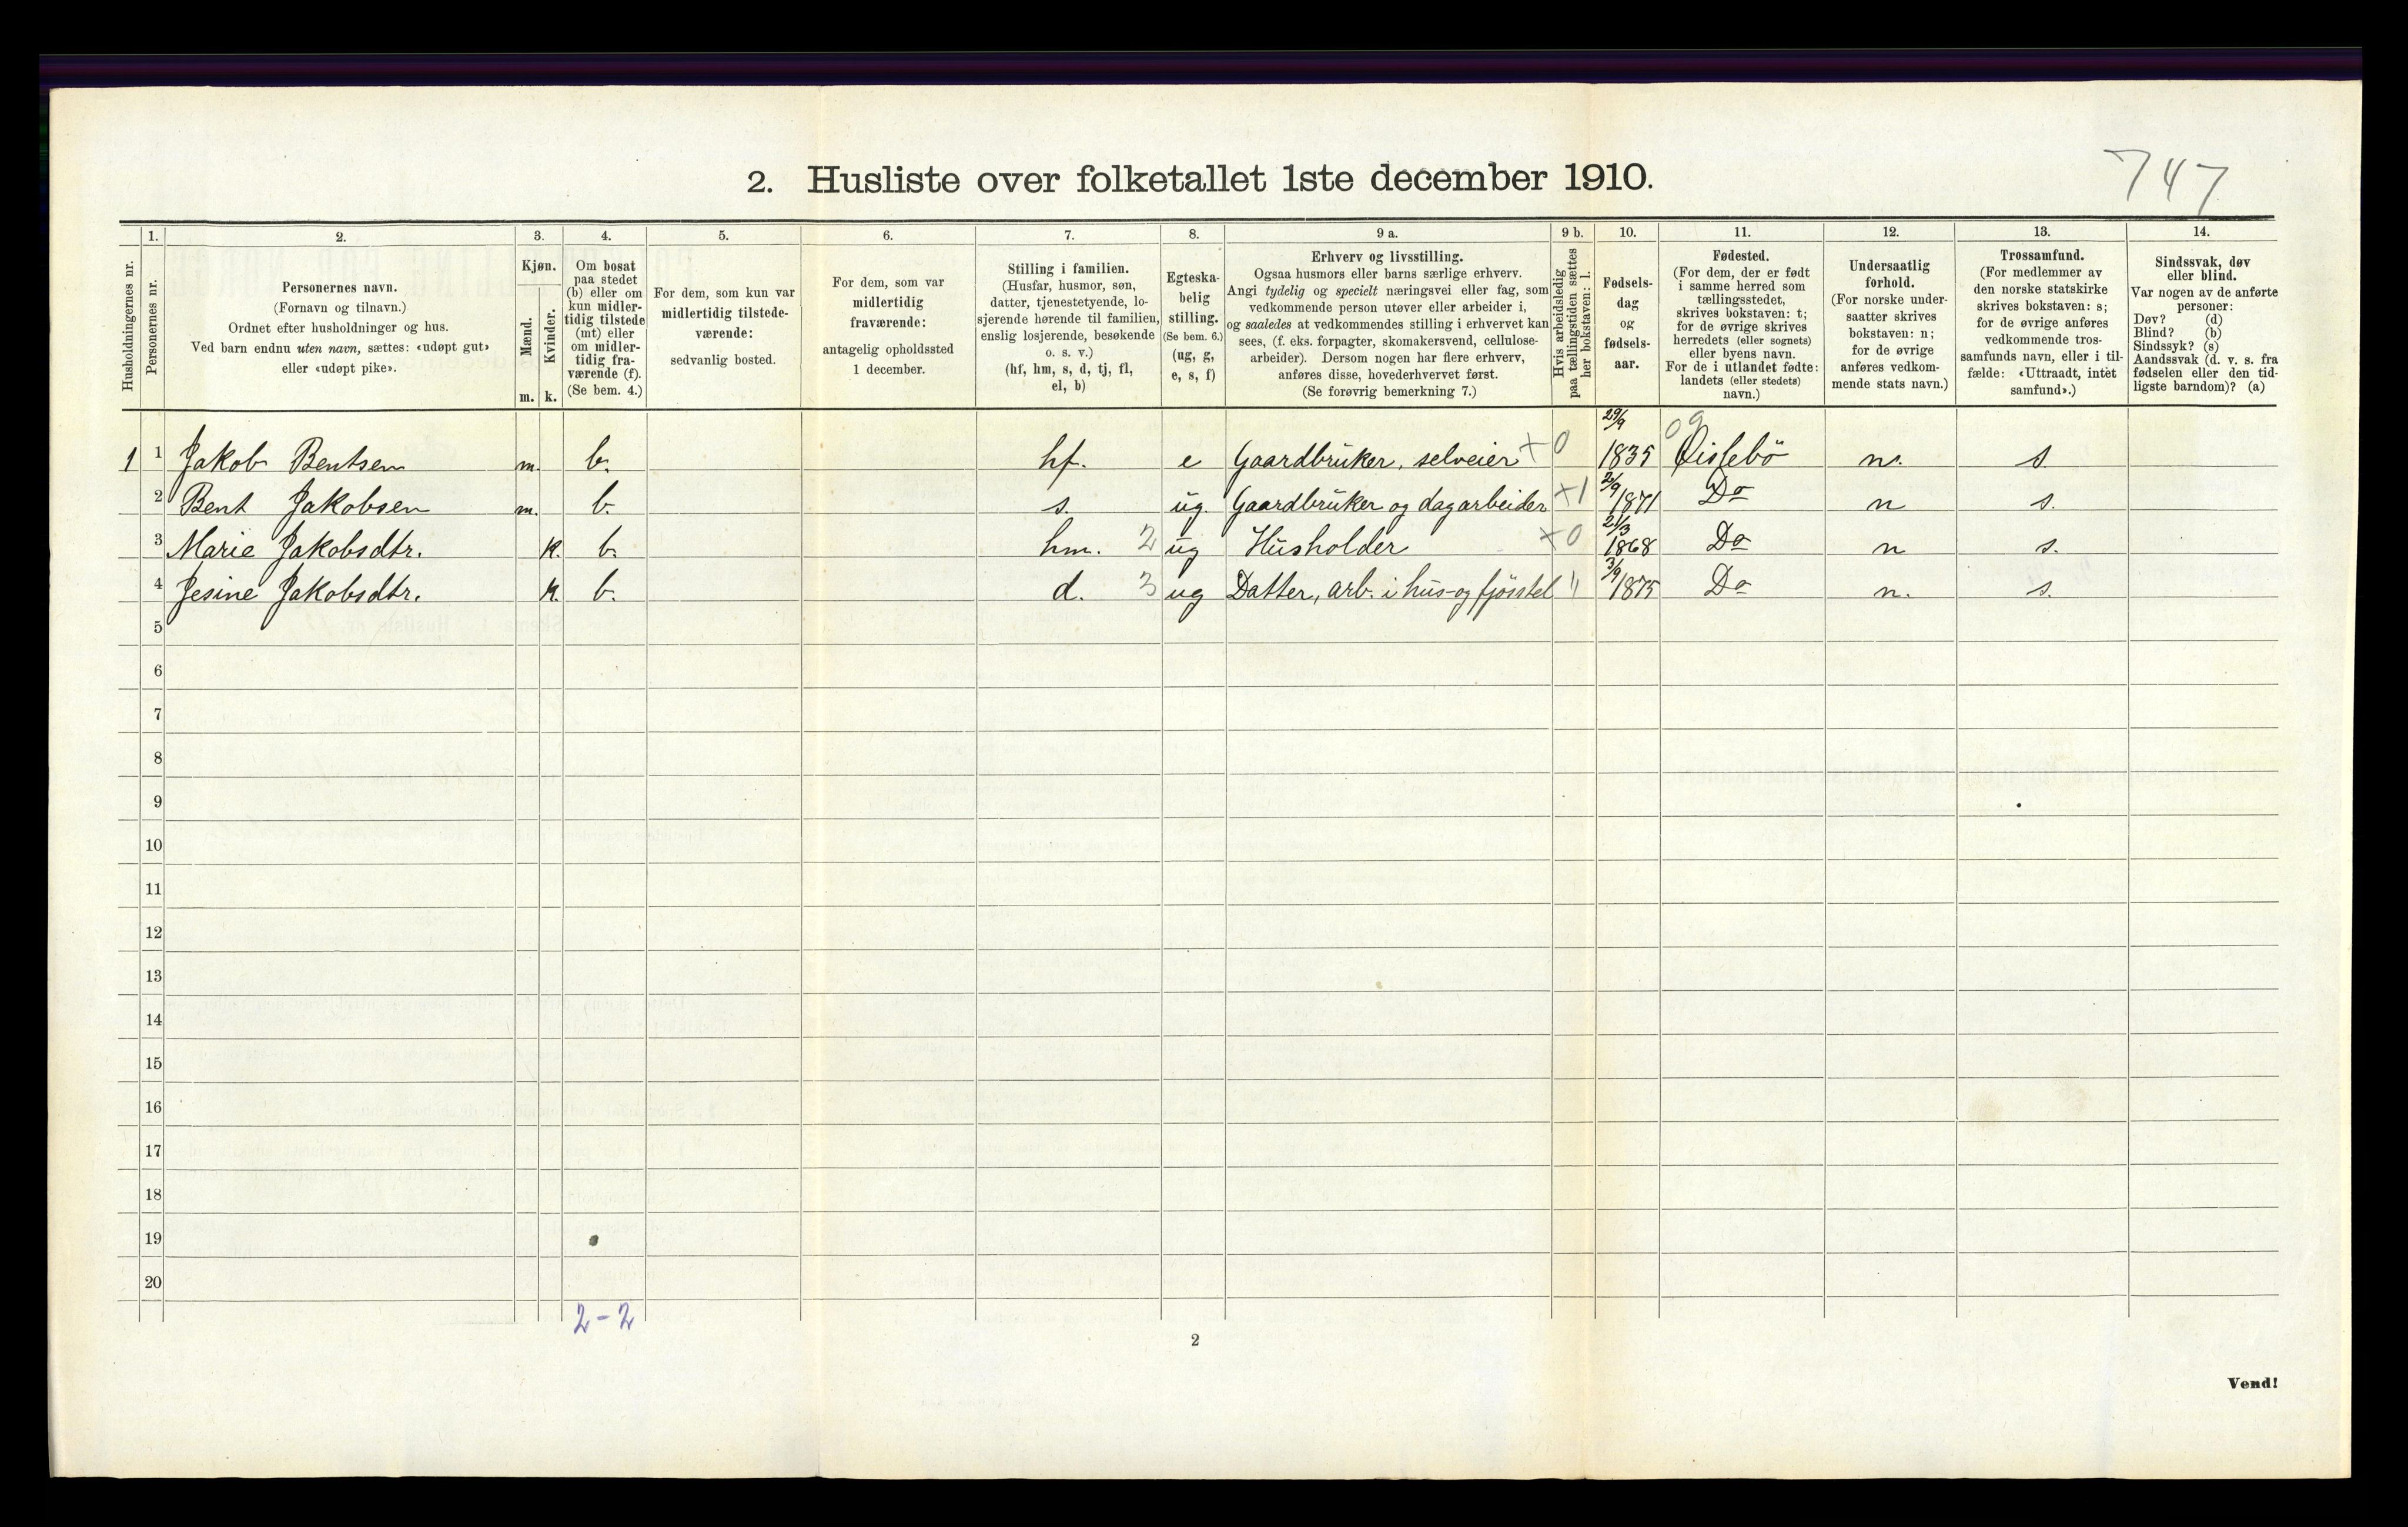 747
2. Husliste over folketallet 1ste december 1910.
Husholdningernes nr.
1. Personernes nr.
2. Personernes navn.
(Fornavn og tilnavn.)
Ordnet efter husholdninger og hus.
Ved barn endnu uten navn, sættes: «udøpt gut»
eller «udøpt pike».
3. Kjøn.
Mænd. Kvinder.
m. k.
4. Om bosat
paa stedet
(b) eller om
kun midler-
tidig tilstede
(mt) eller
om midler-
tidig fra-
værende (f).
(Se bem. 4.)
5. For dem, som kun var
midlertidig tilstede-
værende:
sedvanlig bosted.
6. For dem, som var
midlertidig
fraværende:
antagelig opholdssted
1 december.
7. Stilling i familien.
(Husfar, husmor, søn,
datter, tjenestetyende, lo-
sjerende hørende til familien,
enslig losjerende, besøkende
o. s. v.)
(hf, hm, s, d, tj, fl,
el, b)
8. Egteska-
belig
stilling.
(Se bem. 6.)
(ug, g,
e, s, f)
9 a. Erhverv og livsstilling.
Ogsaa husmors eller barns særlige erhverv.
Angi tydelig og specielt næringsvei eller fag, som
vedkommende person utøver eller arbeider i,
og saaledes at vedkommendes stilling i erhvervet kan
sees, (f. eks. forpagter, skomakersvend, cellulose-
arbeider). Dersom nogen har flere erhverv,
anføres disse, hovederhvervet først.
(Se forøvrig bemerkning 7.)
9 b. Hvis arbeidsledig
paa tællingstiden sættes
her bokstaven: l.
10. Fødsels-
dag
og
fødsels-
aar.
11. Fødested.
(For dem, der er født
i samme herred som
tællingsstedet,
skrives bokstaven: t;
for de øvrige skrives
herredets (eller sognets)
eller byens navn.
For de i utlandet fødte:
landets (eller stedets)
navn.)
12. Undersaatlig
forhold.
(For norske under-
saatter skrives
bokstaven: n;
for de øvrige
anføres vedkom-
mende stats navn.)
13. Trossamfund.
(For medlemmer av
den norske statskirke
skrives bokstaven: s;
for de øvrige anføres
vedkommende tros-
samfunds navn, eller i til-
fælde: «Uttraadt, intet
samfund».)
14. Sindssvak, døv
eller blind.
Var nogen av de anførte
personer:
Døv? (d)
Blind? (b)
Sindssyk? (s)
Aandssvak (d. v. s. fra
fødselen eller den tid-
ligste barndom)? (a)
1 1 Jakob Bentsen m. b. hf. e Gaardbruker, selveier + 0 29/9 1835 09 Øislebö n. s.
2 Bent Jakobsen m. b. s. ug. Gaardbruker og dagarbeider +1 2/9 1871 Do n s.
3 Marie Jakobsdtr. k. b. hm. 2 ug Husholder +0 21/3 1868 Do n s.
4 Jesine Jakobsdtr. k. b. d. 3 ug Datter, arb. i hus- og fjösstel " 3/9 1875 Do n. s.
5
6
7
8
9
10
11
12
13
14
15
16
17
18
19
20
2-2
2
Vend!